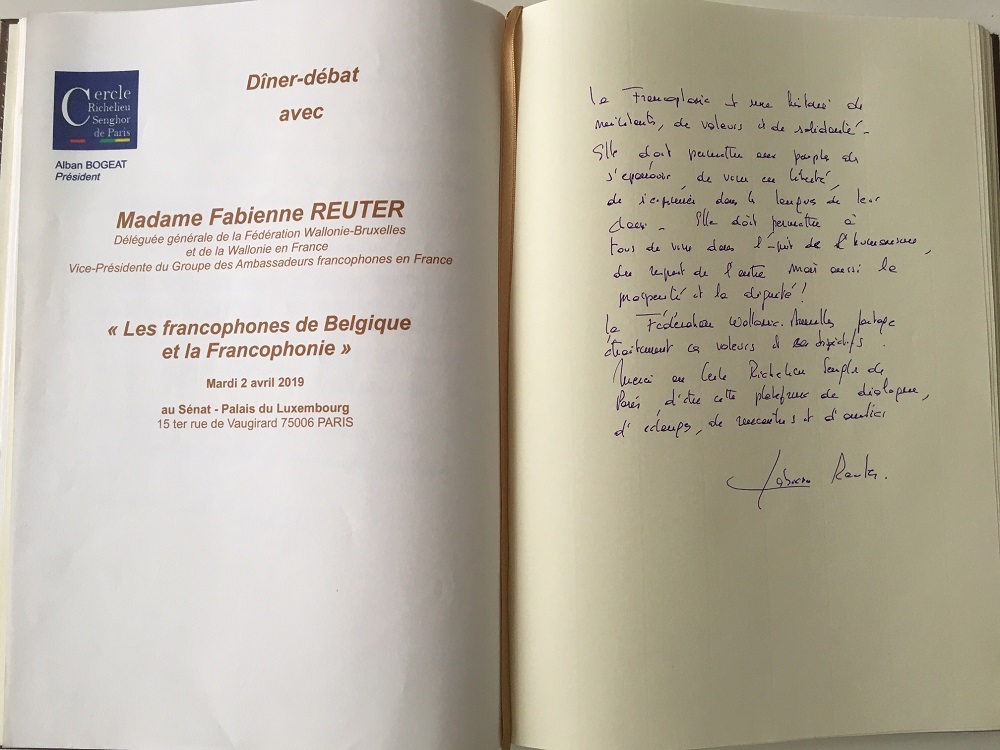 Cercle
Richelieu
Senghor
de Paris
Alban BOGEAT
Président
Dîner-débat
avec
Madame Fabienne REUTER
Déléguée générale de la Fédération Wallonie-Bruxelles
et de la Wallonie en France
Vice-Présidente du Groupe des Ambassadeurs francophones en France
« Les francophones de Belgique
et la Francophonie »
Mardi 2 avril 2019
au Sénat - Palais du Luxembourg
15 ter rue de Vaugirard 75006 PARIS
La Francophonie est une histoire de
militants, de valeurs et de solidarité.
Elle doit permettre aux peuples de
s'épanouir, de vivre en liberté,
de s'exprimer dans la langue de leur
choix. Elle doit permettre à
tous de vivre dans l'esprit de l'humanisme,
du respect de l'autre mais aussi la
prospérité et la dignité !
La Fédération Wallonie-Bruxelles partage
étroitement ces valeurs et ces objectifs.
Merci au Cercle Richelieu Senghor de
Paris d'être cette plateforme de dialogue,
d'échanges, de rencontres et d'amitiés
Fabienne Reuter.